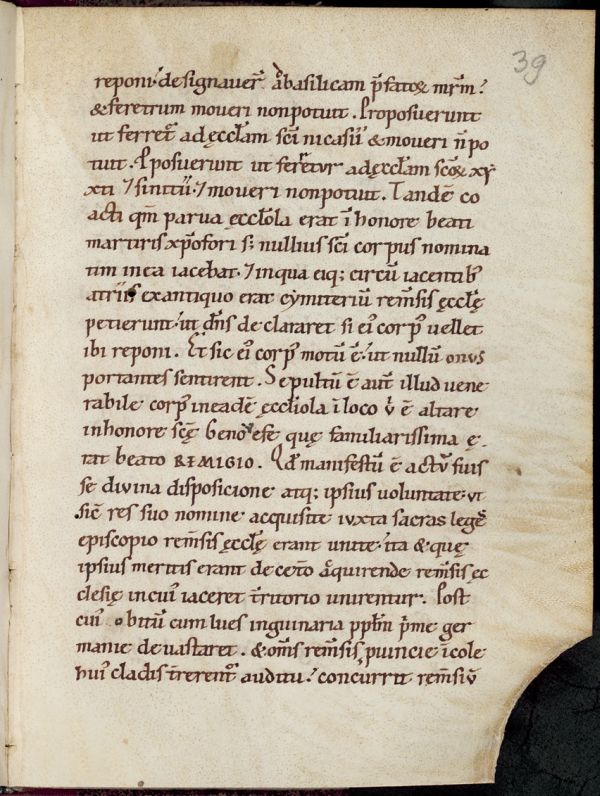 39
reponi· designauer̄ ad basilicam p̄fato⁊ mr̄m·
& feretrum moueri non potuit. Proposuerunt
ut ferret᷑ ad ęccłam sc̄i nicasii· & moueri n̄ po
tuit. Pposuerunt ut feret᷑ur ad ęccłam sc̄o⁊ xp̄
xti ⁊ sinitii· ⁊ moueri non potuit. Tandē co
acti qm̄ parua ęccłola erat ī honore beati
martiris xp̄ofori s; nullius sc̄i corpus nomina
tim in ea iacebat· ⁊ in qua eiq; circū iacentib;
atriis ex antiquo erat cymiteriū rem̄sis ęccłę
petierunt· ut dn̄s declararet si ei᷒ corp᷒ uellet
ibi reponi. Et sic ei᷒ corp᷒ motū ē· ut nullū onus
portantes sentirent. Sepultū ē aut̄ illud uene
rabile corp᷒ in eadē ęccliola ī loco ubi ē altare
in honore scę̄ genouefe quę familiarissima e
rat beato REMIGIO. Qd̄ manifestū ē actū fuis
se diuina disposicione atq; ipsius uoluntate· ut
sic̄ res suo nomine acquisite iuxta sacras leges
episcopio rem̄sis ęccłę erant unite· ita & quę
ipsius meritis erant de cet̄o adquirende rem̄sis ęc
clesię in cui᷒ iaceret t̄ritorio unirentur. Post
cui᷒ obitum cum lues inguinaria pp̄łm p̄me ger
manie deuastaret. & om̄s rem̄sis puincie īcole
hui᷒ cladis t̄rerent᷑ auditu· concurrit rem̄siū